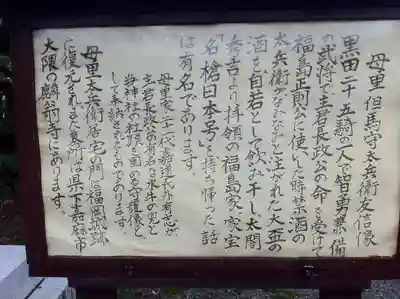 母里但馬守太兵衛友信像
黒田二十五騎の一人で智勇兼備
の武将で主君長政公の命を受けて
福島正則公に使いした時禁酒の
太兵衛がなみなみと注がれた大盃の
酒を自若として飲み干し、太閤
秀吉より拝領の福島家、家宝
名「槍日本号」を持ち帰った話
は有名であります。
母里家二十一代嘉道氏外有志が
主君長政公の有名な水牛の兜と
当神社の社頭を固める守護像と
して奉納されたものであります。
母里太兵衛居宅の門は福岡城跡
に復元され又、墓所は県下嘉麻市
大隈の麟翁寺にあります。